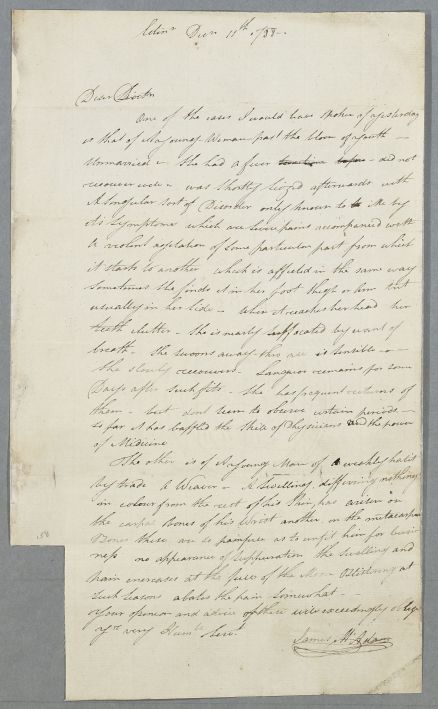 Edinr Decr 11th 1788.
Dear Doctor
One of the cases I would have spoke of yesterday
is that of a young Woman past the bloom of youth —
Unmarried — She had a fever — did not
recover well — was shortly seized afterwards with
A singular sort of Disorder only known to Me by
its Symptoms which are severe pains accompanied with
A violent agitation of some particular part from which
it starts to another which is affected in the same way
Sometimes she finds it in her foot thigh or Arm but
usually in her Side — When it reaches her head her
teeth clutter — She is nearly suffocated by want of
breath — She swoons away tho' is sensible —
She slowly recovers — Languor remains for some
Days after such fits — She has frequent returns of
them — but dont seem to observe certain periods —
so far it has baffled the Skill of Physicians and the power
of Medicine
The other is of a young Man of a weakly habit
by trade A Weaver — A Swelling, differing nothing
in colour from the rest of his Skin, has arisen on
the carpal Bones of his Wrist another on the metacarpal
Bones these are so painfull as to unfit him for busi
ness no appearance of Suppuration the Swelling and
pain increases at the full of the Moon Blistering at
such seasons abates the pain somewhat —
Your opinion and advice of these will exceedingly oblige
Yr very Humle Servt
James McAdam
.50